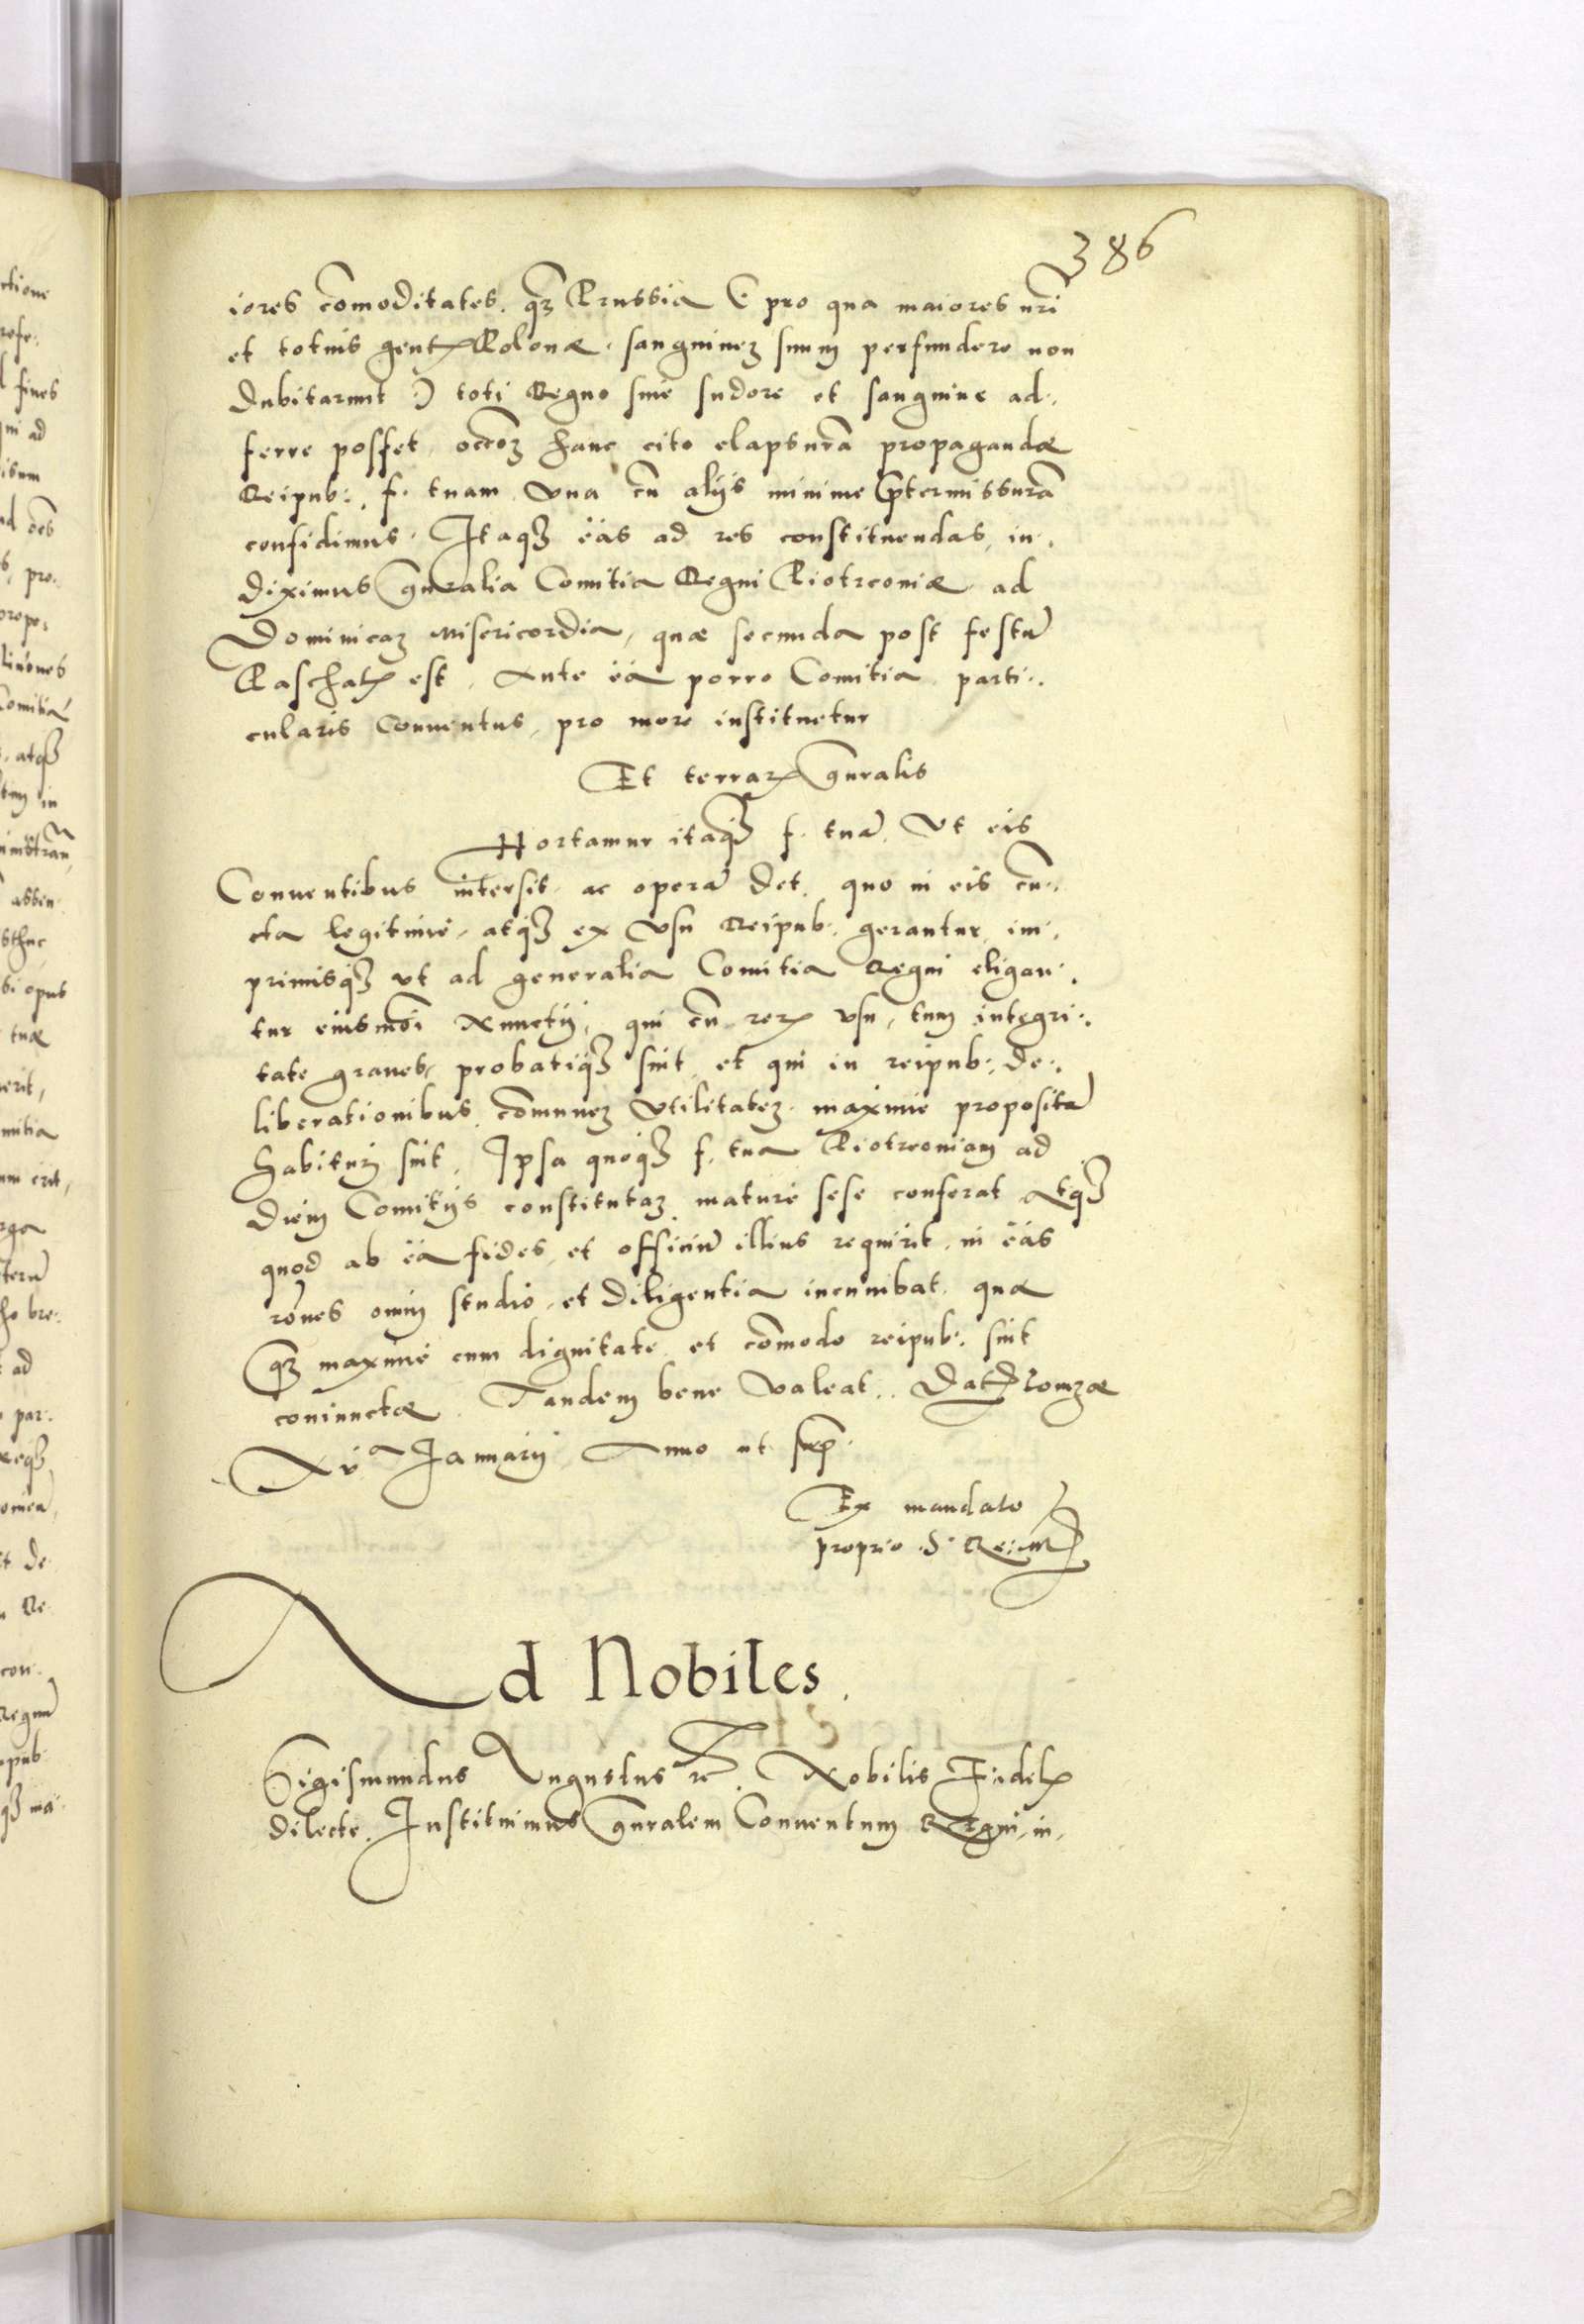 386
iores com̃oditates. q̃ȝ Prussia (: pro qua maiores nr̃i
et totius gentꝭ Polonæ. sanguineȝ suum perfundere non
dubitarunt :) toti Regno siue sudore et sanguine ad-
ferre posset, occõeȝ hanc cito elapsurã propagandæ
Reipub:, f. tuam vna cũ alijs minime p̃termissurã
confidimus. Itaqȝ eas ad res constituendas, in-
diximus gñralia Comitia Regni Piotrcouiæ ad
Dominicaȝ Misericordia, quæ secunda post festũ
Paschatꝭ est. Ante ea porro Comitia parti-
cularis Conuentus, pro more instituetur
Et terrarꝝ gñralis
Hortamur itaqȝ f. tuã. Vt eis
Conuentibus intersit. ac operã det, quo in eis cun-
cta legitime, atqȝ ex vsu Reipub: gerantur, im-
primisqȝ vt ad generalia Comitia Regni eligan-
tur eiusmõi Nunctij, qui cũ rerꝝ vsu, tum integri-
tate graues, probatiqȝ sint, et qui in reipub: de-
liberationibus com̃uneȝ vtilitateȝ maxime propositã
habituri sint. Ipsa quoqȝ f. tua Piotrcouiam ad
diem Comitijs constitutaȝ mature sese conferat Atqȝ
quod ab ea fides, et officiũ illius requirit, in eas
rõnes omni studio, et diligentia incumbat. quæ
q̃ȝ maxime cum dignitate et com̃odo reipub: sint
coniunctæ. Tandem bene valeat. Datꝭ Lomzæ
XVa Januarij Anno ut sup̃.
Ex mandato
proprio S. Re: Mtꝭ
Ad Nobiles.
Sigismundus Augustus rc̃. Nobilis Fidelꝭ
dilecte. Instituimus gñralem Conuentum Regni, in,